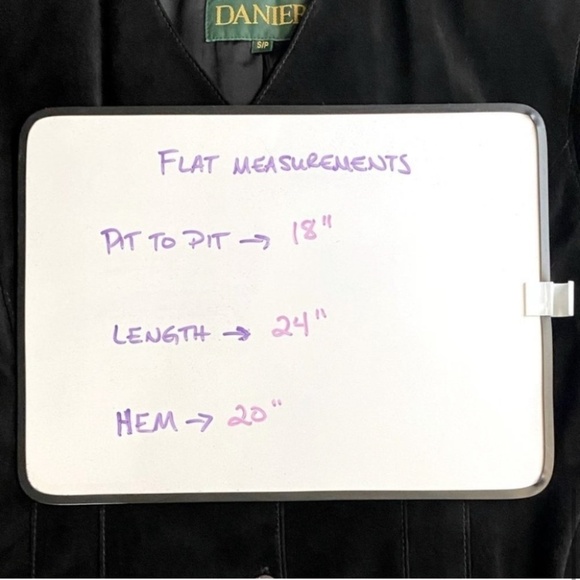 DANIER
S/P
FLAT MEASUREMENTS
PIT TO PIT → 18"
LENGTH → 24"
HEM → 20"